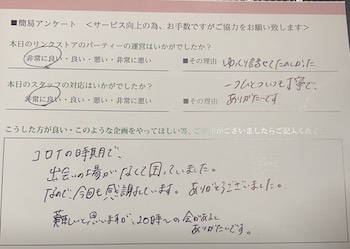 ■簡易アンケート ＜サービス向上の為、お手数ですがご協力をお願い致します＞
本日のリンクストアのパーティーの運営はいかがでしたか？
非常に良い・良い・悪い・非常に悪い ■その理由 ゆっくり話せてたのしかった
本日のスタッフの対応はいかがでしたか？
非常に良い・良い・悪い・非常に悪い ■その理由 一つひとつとても丁寧で、
ありがたいです
こうした方が良い・このような企画をやってほしい等、ございましたらご記入ください
コロナの時期で、
出会いの場がなくて困っていました。
なので今回も感謝しています。ありがとうございました。
難しいと思いますが、20時～の会があると
ありがたいです。